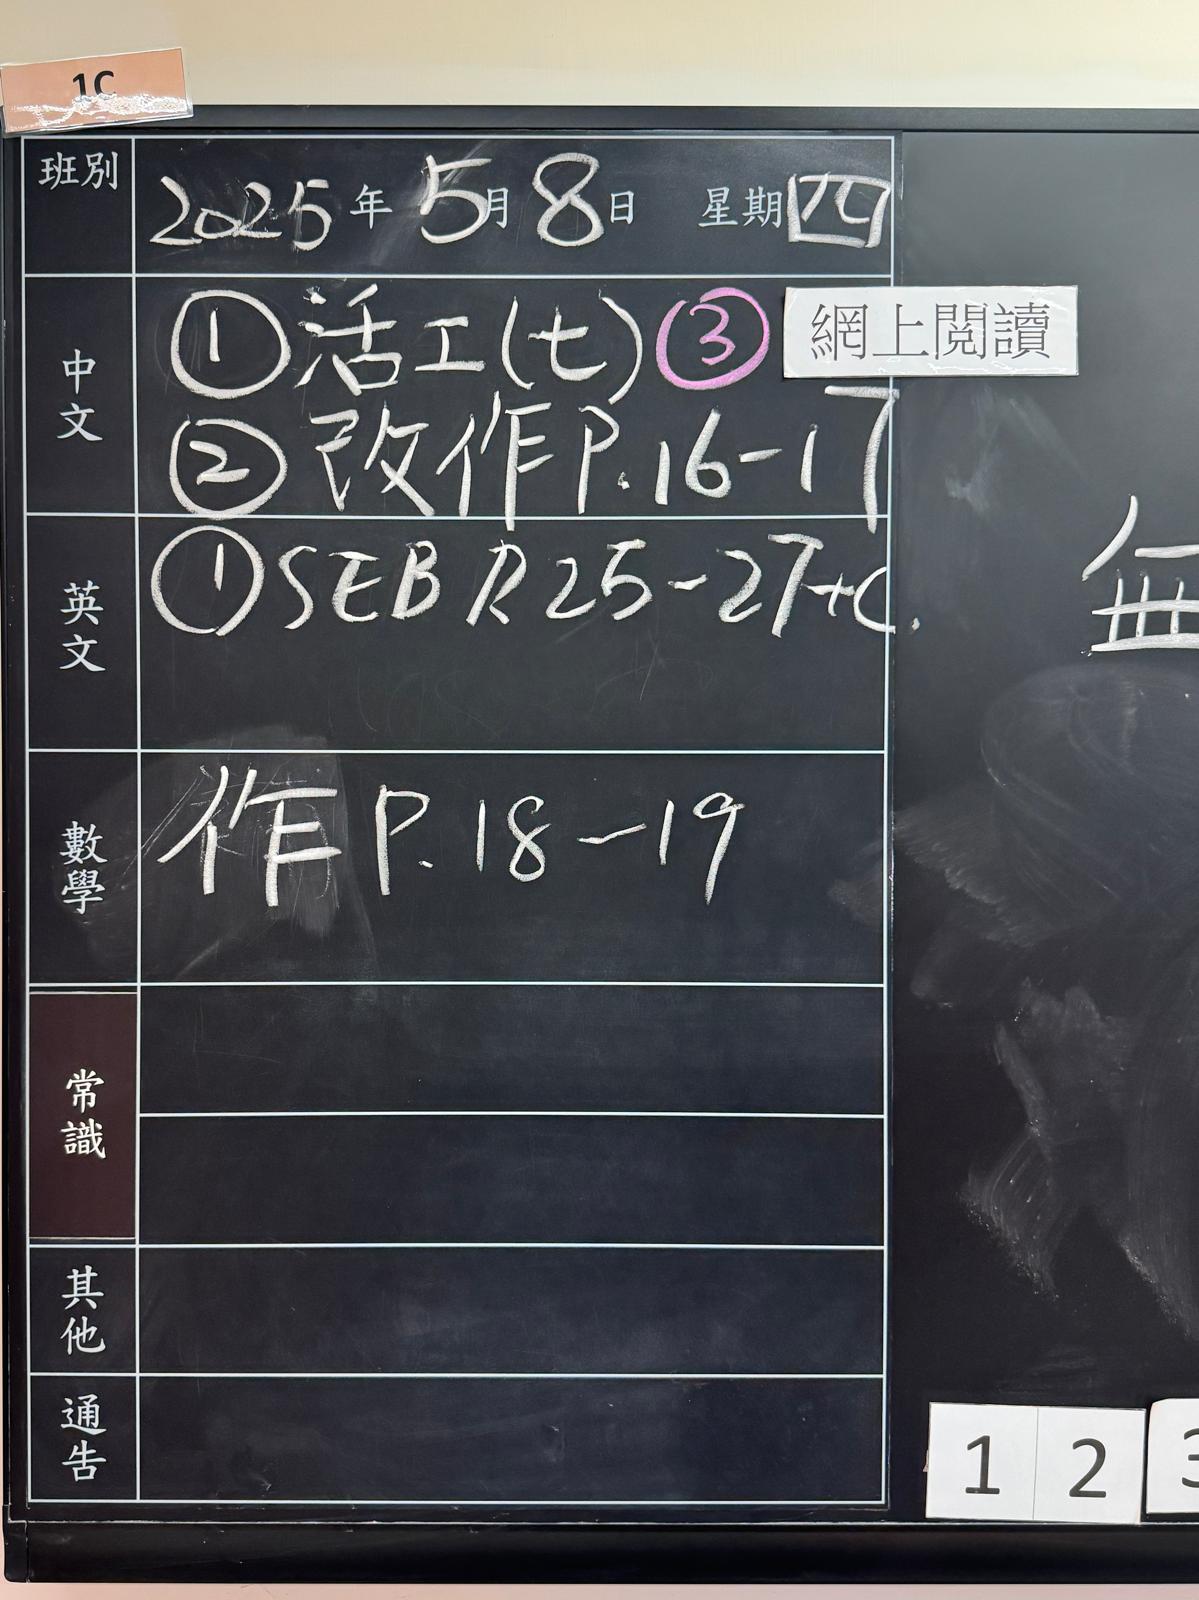 1C
班別 2025年5月8日 星期四
中文 ① 活工(七) ③ 網上閱讀
② 改作P.16-17
英文 ① SEB P.25-27+C.
無
數學 作P.18-19
常識
其他
通告
1 2 3